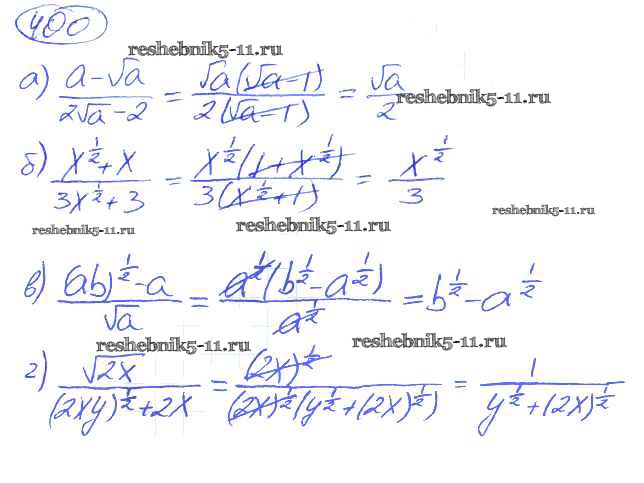 400
reshebnik5-11.ru
а) (a - √a)/(2√a - 2) = (√a(√a - 1))/(2(√a - 1)) = √a/2
reshebnik5-11.ru
б) (x^(1/2) + x)/(3x^(1/2) + 3) = (x^(1/2)(1 + x^(1/2)))/(3(x^(1/2) + 1)) = x^(1/2)/3
reshebnik5-11.ru
reshebnik5-11.ru
reshebnik5-11.ru
в) ((ab)^(1/2) - a)/√a = (a^(1/2)(b^(1/2) - a^(1/2)))/a^(1/2) = b^(1/2) - a^(1/2)
reshebnik5-11.ru
reshebnik5-11.ru
г) √2x/((2xy)^(1/2) + 2x) = (2x)^(1/2)/((2x)^(1/2)(y^(1/2) + (2x)^(1/2))) = 1/(y^(1/2) + (2x)^(1/2))